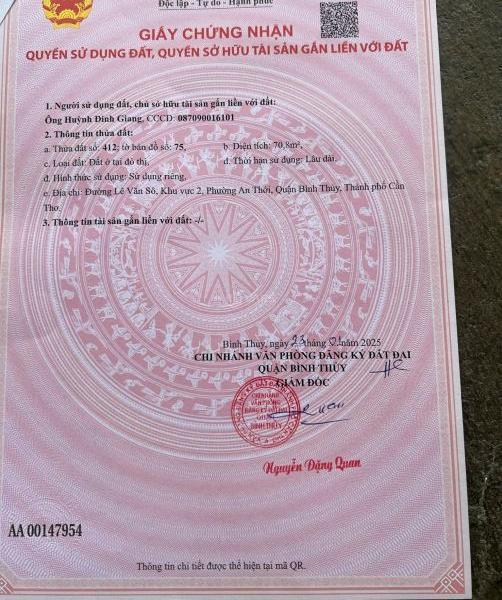 Độc lập - Tự do - Hạnh phúc
GIẤY CHỨNG NHẬN
QUYỀN SỬ DỤNG ĐẤT, QUYỀN SỞ HỮU TÀI SẢN GẮN LIỀN VỚI ĐẤT
1. Người sử dụng đất, chủ sở hữu tài sản gắn liền với đất:
Ông Huỳnh Đình Giang, CCCD: 087090016101
2. Thông tin thửa đất:
a. Thửa đất số: 412; tờ bản đồ số: 75, b. Diện tích: 70,8m²,
c. Loại đất: Đất ở tại đô thị, d. Thời hạn sử dụng: Lâu dài,
đ. Hình thức sử dụng: Sử dụng riêng,
e. Địa chỉ: Đường Lê Văn Sô, Khu vực 2, Phường An Thới, Quận Bình Thủy, Thành phố Cần
Thơ.
3. Thông tin tài sản gắn liền với đất: -/-
Bình Thủy, ngày 23 tháng 01 năm 2025
CHI NHÁNH VĂN PHÒNG ĐĂNG KÝ ĐẤT ĐAI
QUẬN BÌNH THỦY
GIÁM ĐỐC
CHI NHÁNH
VĂN PHÒNG
ĐĂNG KÝ ĐẤT ĐAI
BÌNH THỦY
Nguyễn Đặng Quan
AA 00147954
Thông tin chi tiết được thể hiện tại mã QR.